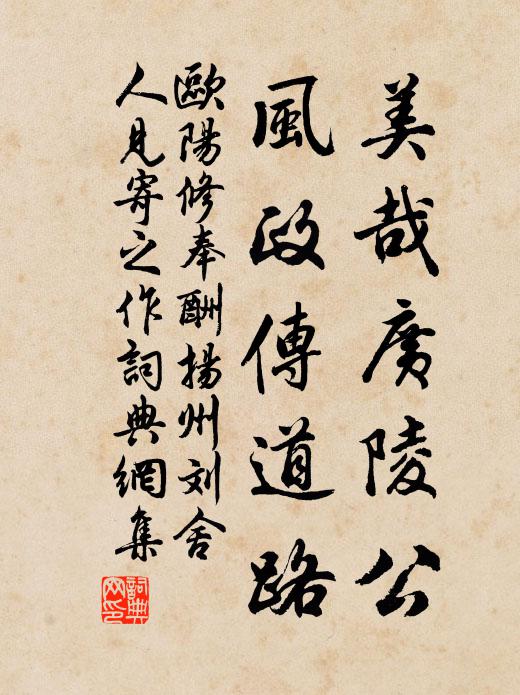 美哉廣陵公
風政傳道路
歐陽修奉酬揚州刘舍
人見寄之作詞典網集
詞典
网印